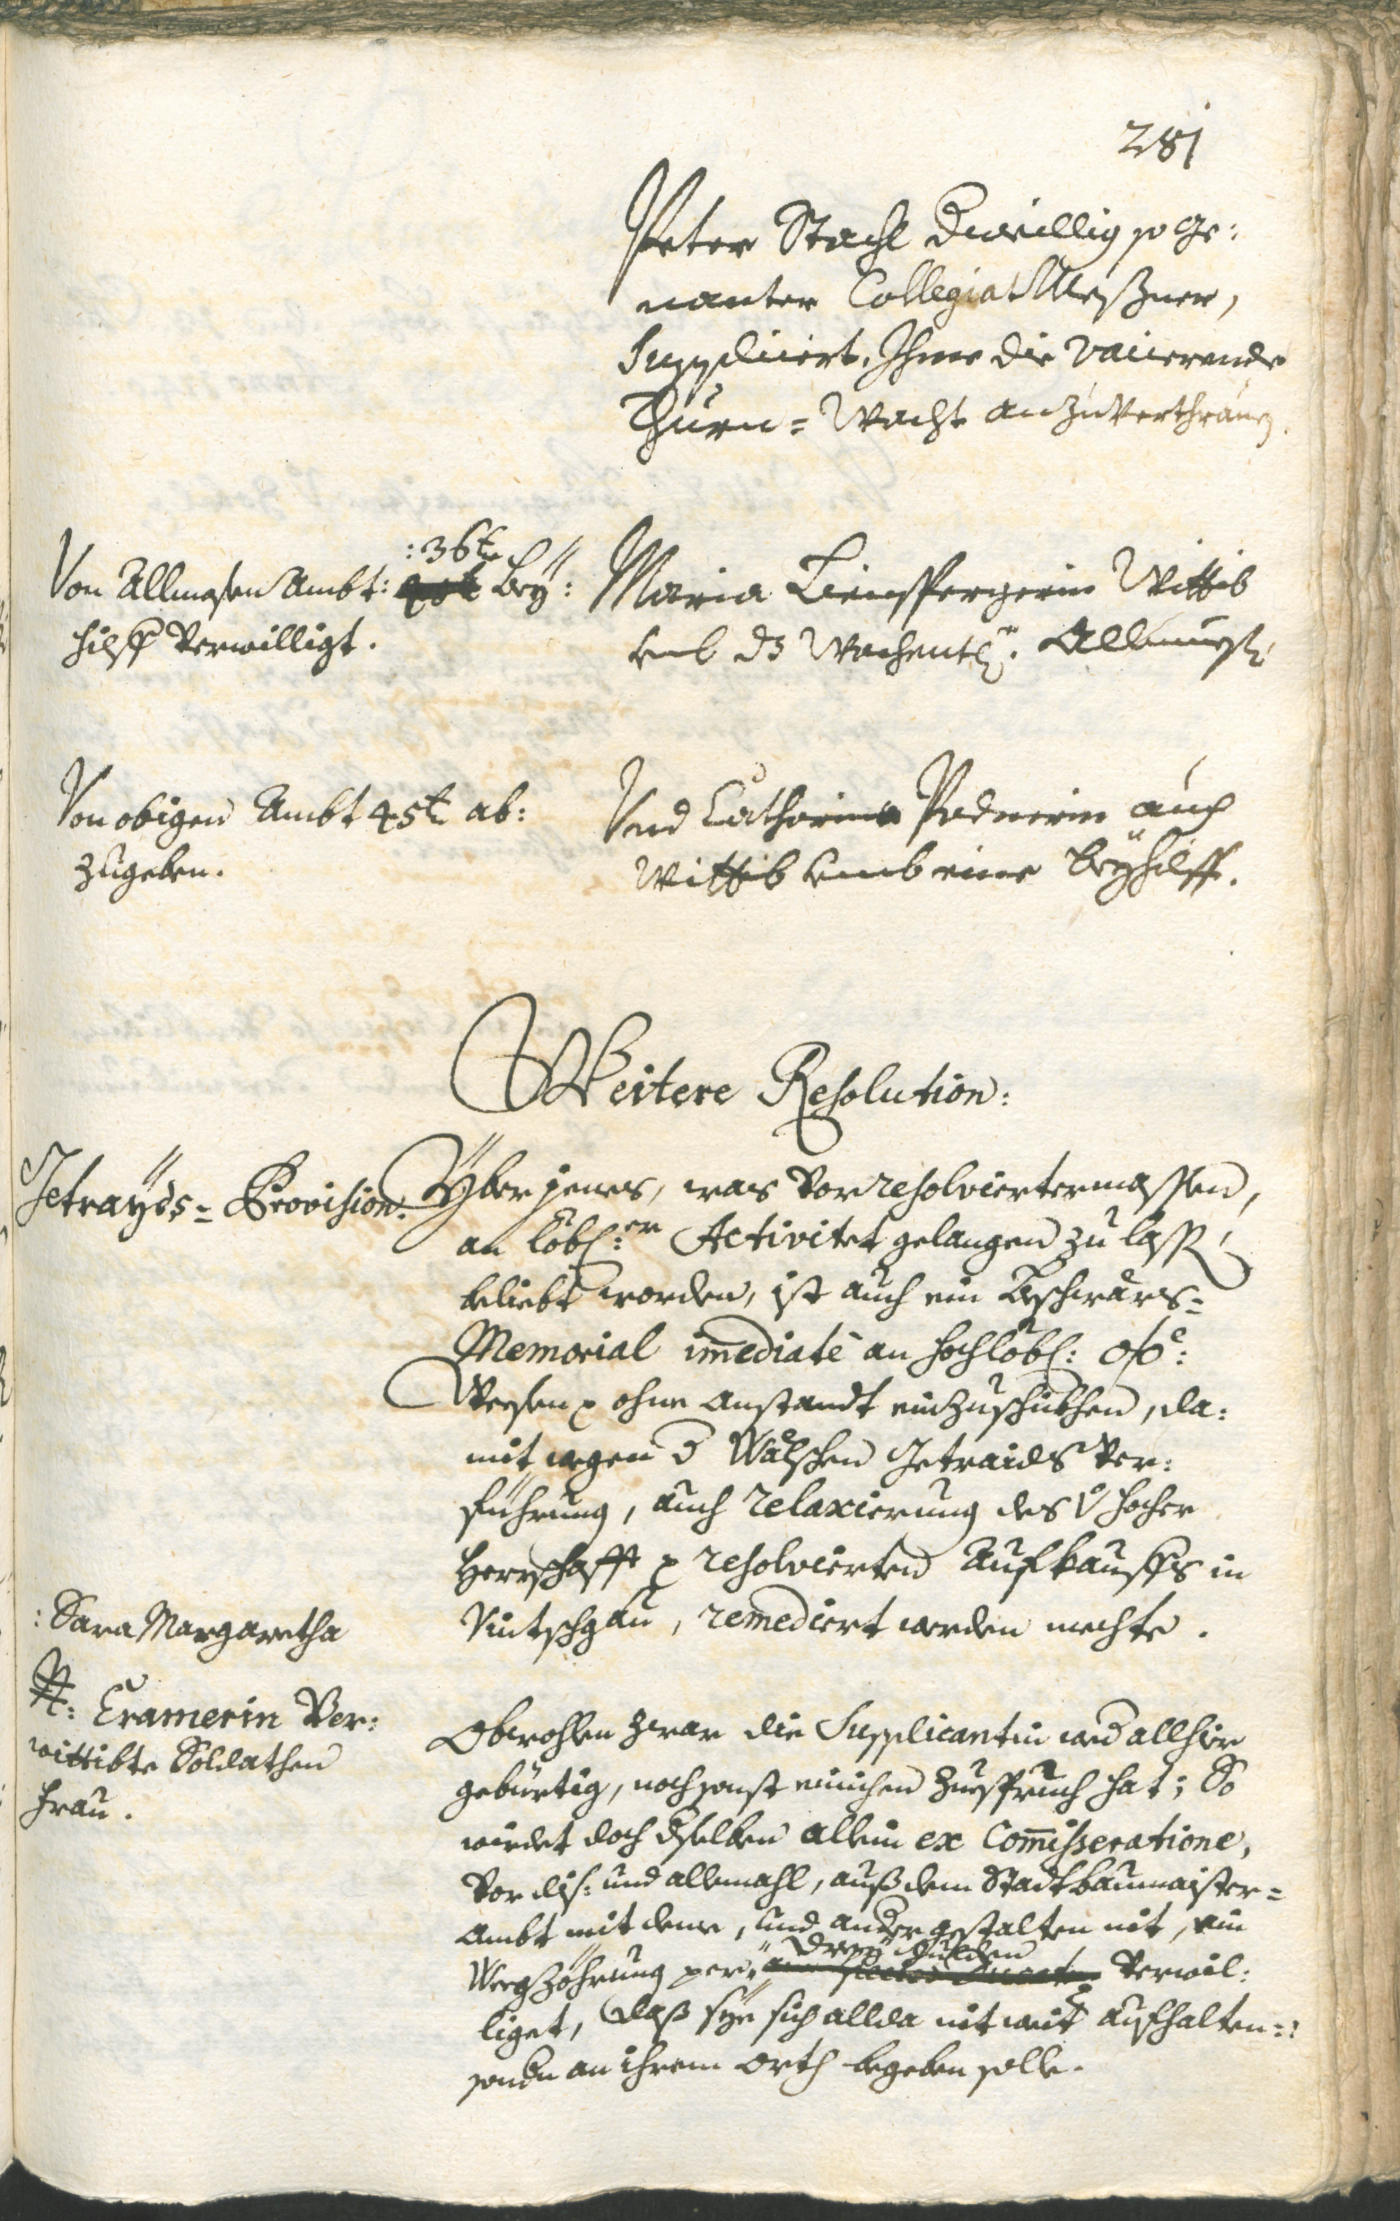 281
Peter Stachl Zwiellig so ge:
nanter Collegiat Messner,
Suppliciert, Ihme die vacierende
Thurn= Wacht anzuverthrauen.
Von Allmosen Ambt: :36 kr Bey:
hilff verwilligt.
Maria Wittib
umb dz Wochentl: Allmosen
Von obigen Ambt 45 kr ab:
zugeben.
Und Catharina auch
Wittib umb eine Beyhilff.
Weitere Resolution:
Getrayds= Provision:
Yber jenes, was vorresolviertermassen,
an löbl:er Activitet gelangen zu lassen
beliebt worden, ist auch ein Beschwärs=
Memorial imediatè an hochlöbl: o:ö:
Wesen p ohne anstandt einzuschükhen, da:
mit wegen d Wälschen Getraids Ver:
führung, auch relaxierung des v hocher
Herrschafft p resolvierten Aufkauffs in
Vintschgau, remediert werden mechte.
:Sara Margaretha
N: Cramerin Ver:
wittibte Soldathen
Frau.
Obwohlen zwar die Supplicantin wed allhier
gebürtig, noch sonst einichen Zuespruch hat; So
wirdet doch dselben allein ex Comisseratione,
vor dis: und allemahl, auß dem Stadtbaumaister=
Ambt mit deme, und andergestalten nit, ein
Weegzöhrung per drey Gulden verwil:
liget, daß sye sich allda nit weit aufhalten::
sondn an ihrem Orth begeben solle.